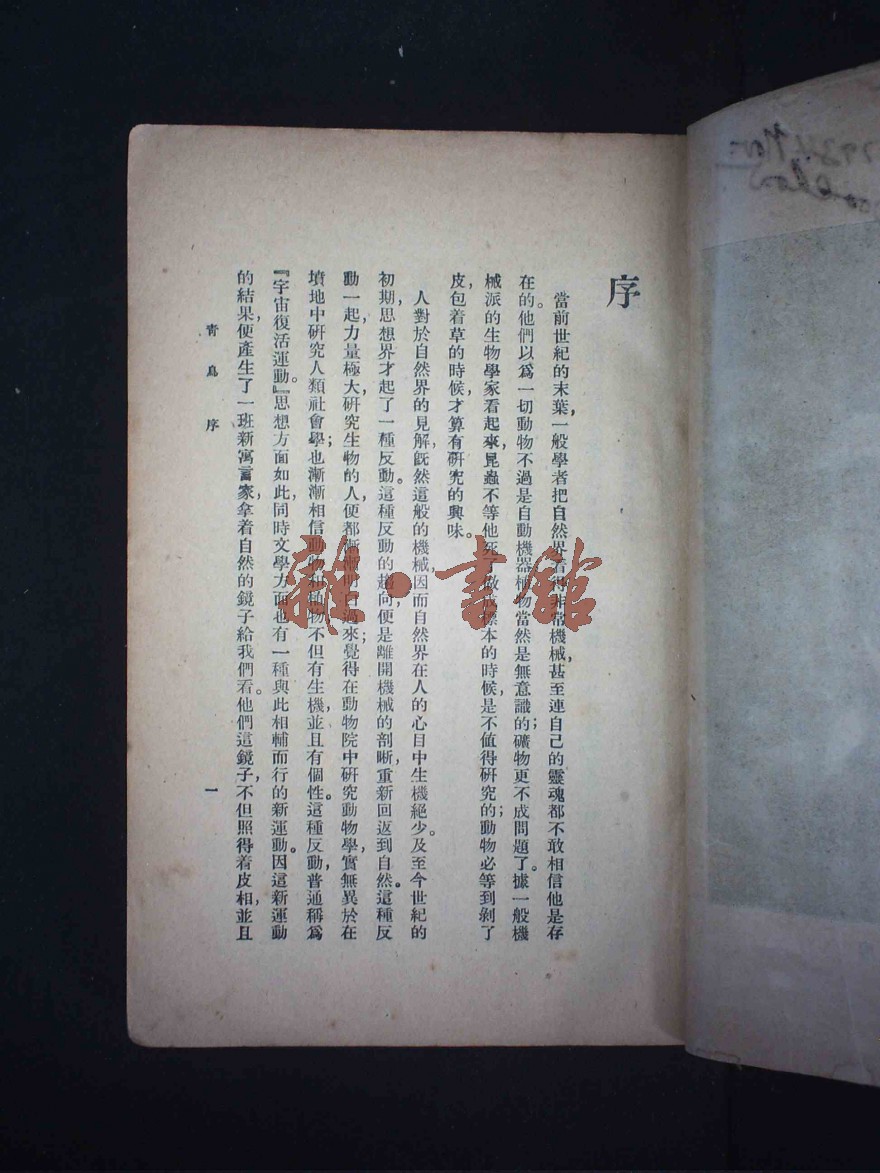 序
當前世紀的末葉,一般學者把自然界看得非常機械,甚至連自己的靈魂都不敢相信他是存
在的。他們以爲一切動物不過是自動機器植物當然是無意識的;礦物更不成問題了。據一般機
械派的生物學家看起來,昆蟲不等他死了做成標本的時候,是不值得研究的;動物必等到剝了
皮,包着草的時候,才算有研究的興味。
人對於自然界的見解,旣然這般的機械因而自然界在人的心目中生機絕少。及至今世紀的
初期,思想界才起了一種反動。這種反動的趨向,便是離開機械的剖晰,重新回返到自然。這種反
動一起,力量極大研究生物的人,便都漸漸明白過來;覺得在動物院中研究動物學,實無異於在
墳地中研究人類社會學;也漸漸相信動物和植物不但有生機,並且有個性。這種反動,普通稱爲
『宇宙復活運動。』思想方面如此,同時文學方面也有一種與此相輔而行的新運動。因這新運動
的結果,便產生了一班新寓言家,拿着自然的鏡子給我們看。他們這鏡子,不但照得着皮相,並且
青鳥 序
一
雜·書館